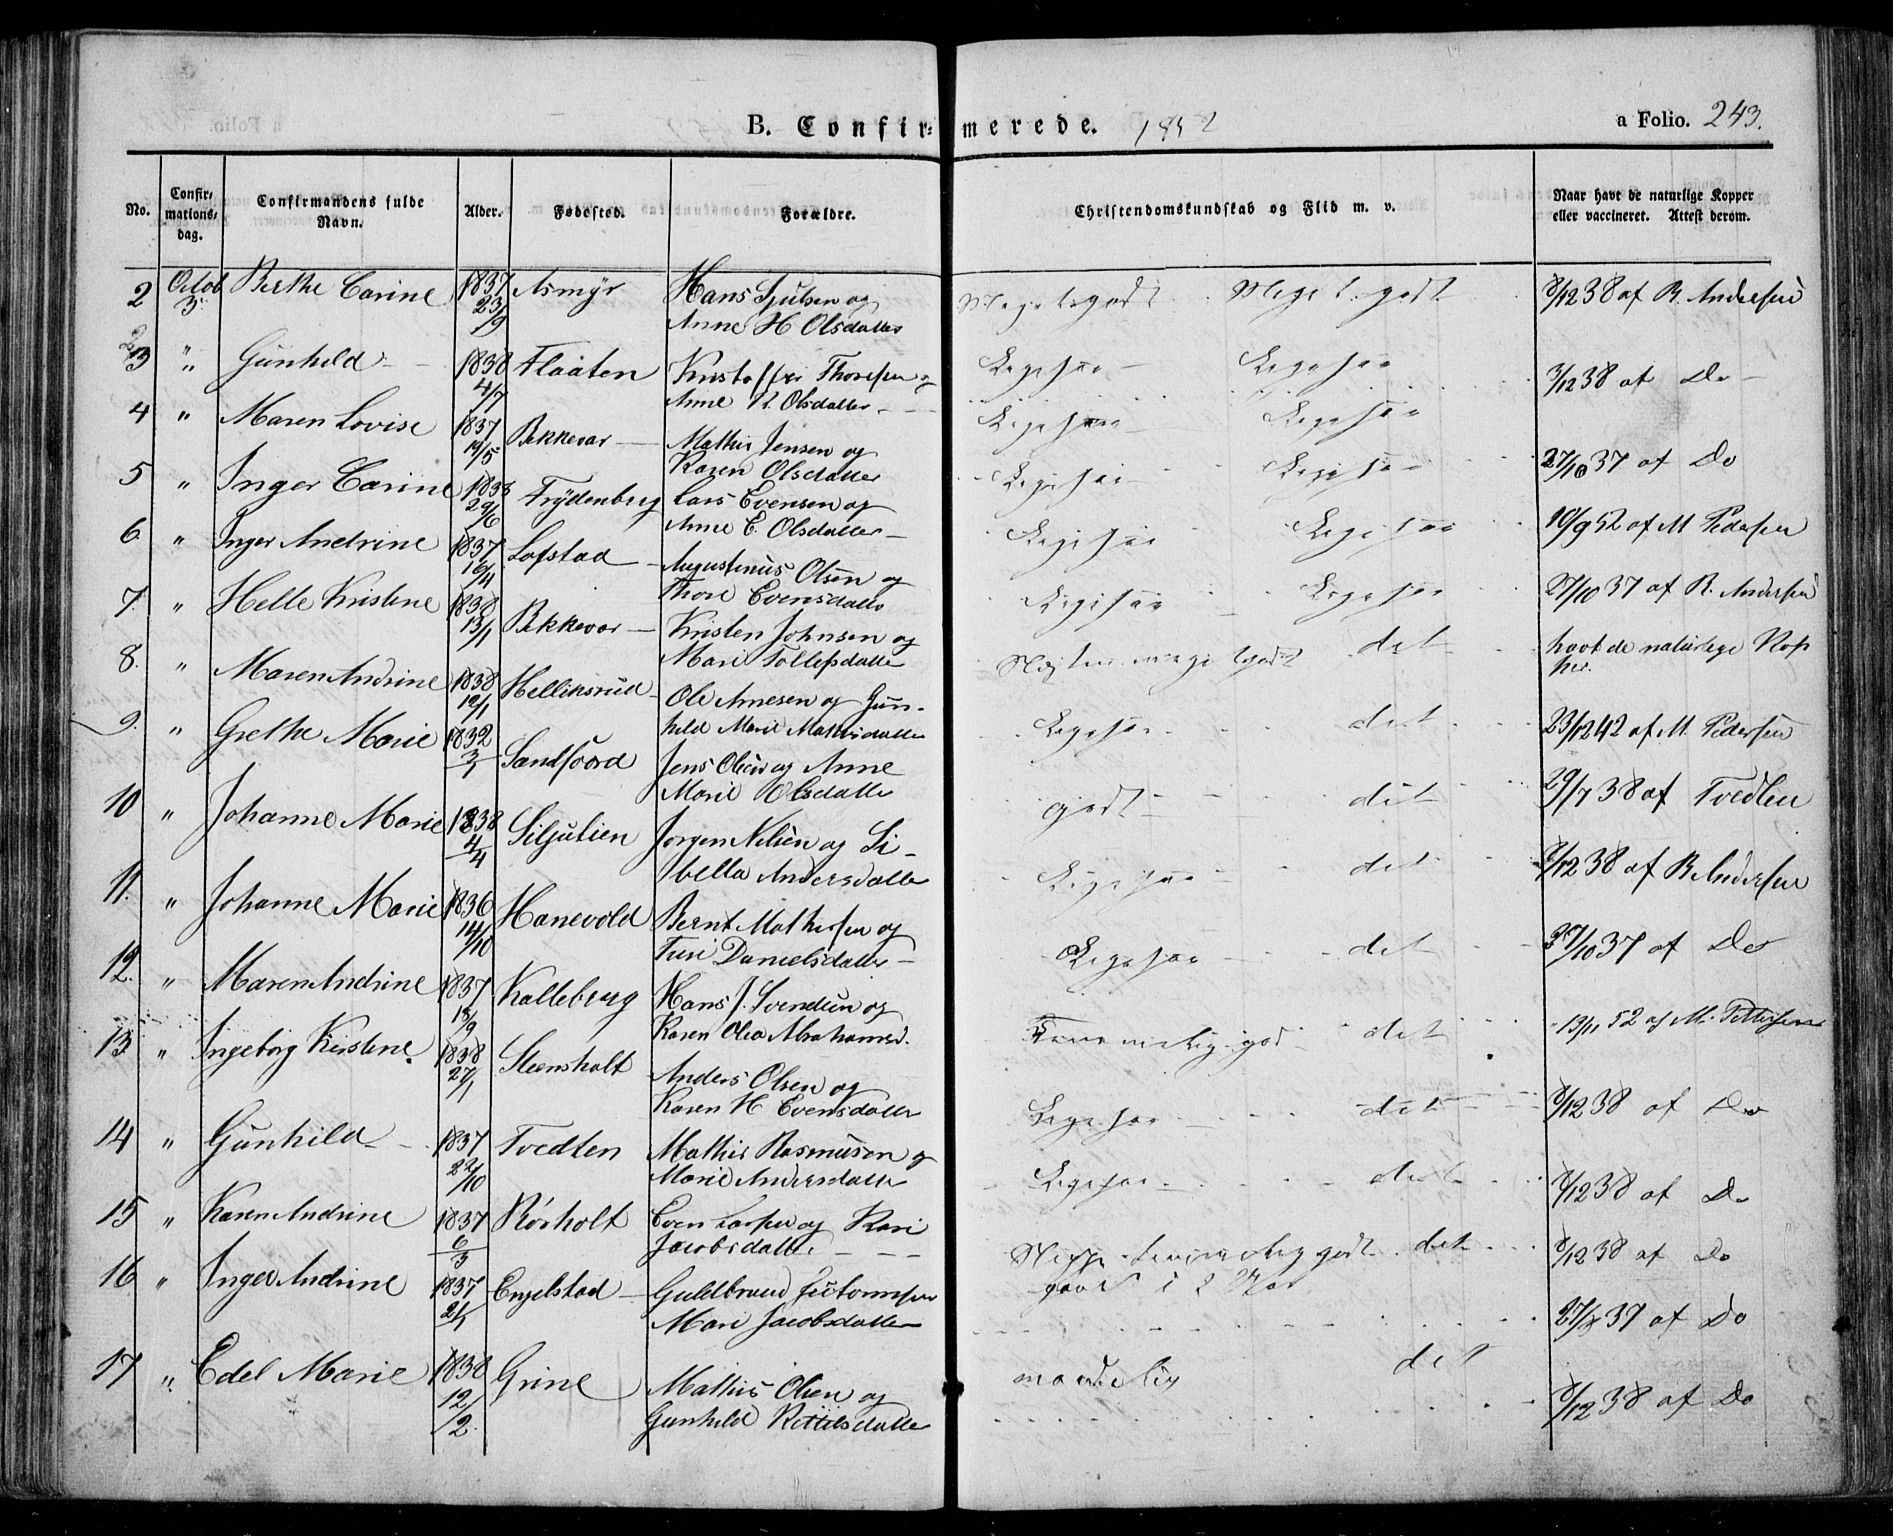 B. Confirmerede. 1852
a Folio. 243.
No. Confirmationsdag. Confirmandens fulde Navn. Alder. Fødested. Forældre. Christendomskundskab og Flid m. v. Naar havt de naturlige Kopper eller vaccineret. Attest derom.
2 Octob 3. Berthe Carine 1837 23/9 Asmyr Hans Gjulsen og
Anne H Olsdatter Meget godt Meget godt 8/12 38 af R. Andersen
3 " Gunhild 1838 4/7 Flaaten Kristoffer Thoresen og
Anne K. Olsdatter Ligesaa Ligesaa 3/12 38 af Do
4 " Maren Lovise 1837 19/5 Bekkevar Mathis Jensen og
Karen Olsdatter Ligesaa Ligesaa 27/10 37 af Do
5 " Inger Carine 1838 29/6 Frydenberg Lars Evensen og
Anne E. Olsdatter Ligesaa Ligesaa 10/9 52 af M Pedersen
6 " Inger Andrine 1837 16/11 Lofstad Augustinus Olsen og
Thore Evensdatter Ligesaa Ligesaa 27/10 37 af R. Andersen
7 " Helle Kristine 1838 13/1 Bekkevar Kristen Johnsen og
Mari Tollefsdatter Ligesaa Ligesaa havt de naturlige Kopper
8. " Maren Andrine 1838 12/1 Helliksrud Ole Arnesen og Gun-
hild Marie Mathisdatter Næsten meget godt det 23/12 42 af M. Pedersen
9. " Grethe Marie 1832 3/1 Sandfoord Jens Olsen og Anne
Marie Olsdatter Ligesaa det 29/7 38 af Tvedten
10 " Johanne Marie 1838 4/4 Siljulien Jørgen Nilsen og Si-
bella Andersdatter godt det 8/12 38 af R. Andersen
11. " Johanne Marie 1836 14/10 Hanevold Bernt Mathisen og
Turi Danielsdatter Ligesaa det 27/10 37 af Do
12. " Maren Andrine 1837 13/9 Kalleberg Hans J. Svendsen og
Karen Olea Abrahamsd. Ligesaa det 13/11 52 af M. Pettersen
13 " Ingeborg Kirstine 1838 27/1 Steensholt Anders Olsen og
Karen H Evensdatter Temmelig god det 8/12 38 af Do
14 " Gunhild 1837 22/10 Tvedten Mathis Rasmusen og
Marie Andersdatter Ligesaa det 8/12 38 af Do
15 " Karen Andrine 1837 6/3 Rørholt Even Larsen og Kari
Jacobsdatter Ligesaa det 8/12 38 af Do
16 " Inger Andrine 1837 2/1 Engelstad Guldbrand
Mari Jacobsdatter temmelig godt det
27/ 39 af Do
17 " Edel Marie 1838 12/2. Grine Mathis Olsen og
Gunhild Kittilsdatter maadelig det 8/12 38 af Do